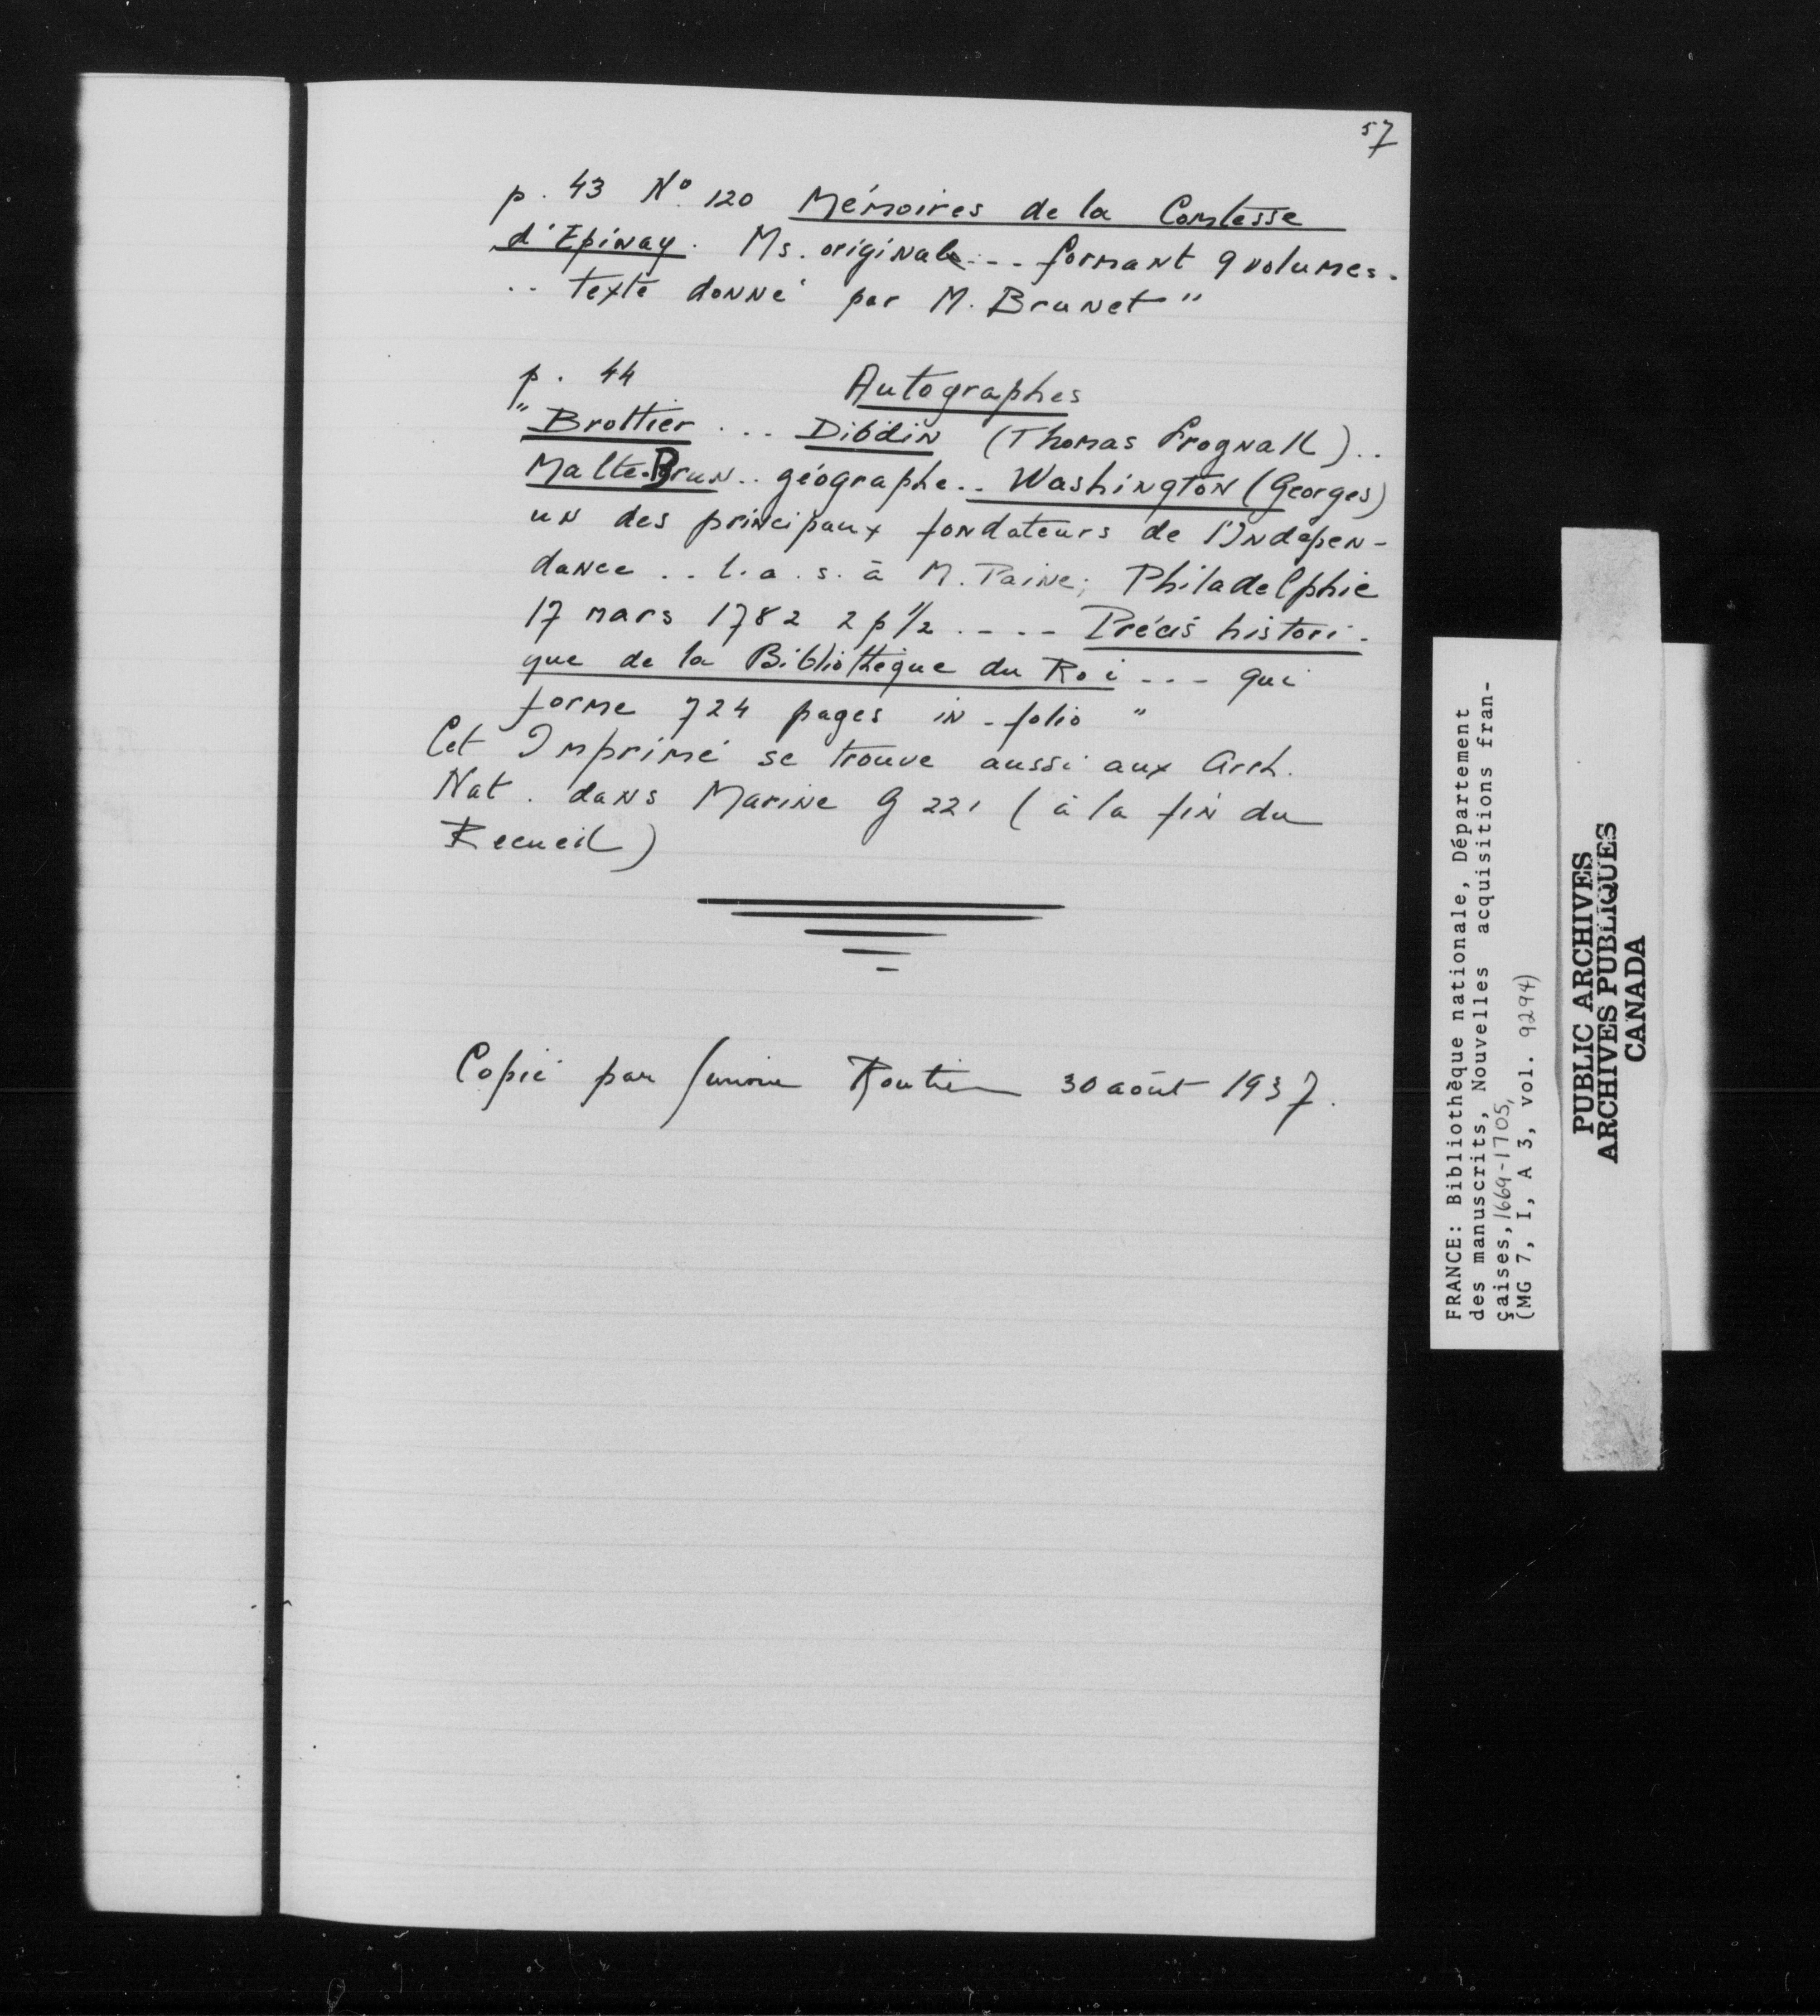 57
p. 43 No. 120 Mémoires de la Comtesse
d'Epinay. Ms. originale... formant 9 volumes.
.. texte donné par M. Brunet"
p. 44 Autographes
"Brottier ... Dibdin (Thomas Frognall)..
Malte-Brun.. géographe.. Washington (Georges)
un des principaux fondateurs de l'Indépen-
dance .. l.a.s. à M. Paine; Philadelphie
17 mars 1782 2 p 1/2 .... Précis histori-
que de la Bibliothèque du Roi ... qui
forme 724 pages in-folio "
Cet Imprimé se trouve aussi aux Arch.
Nat. dans Marine G 221 (à la fin du
Recueil)
Copié par Routier 30 août 1937.
FRANCE: Bibliothèque nationale, Département
des manuscrits, Nouvelles acquisitions fran-
çaises, 1669-1705,
(MG 7, I, A 3, vol. 9294)
PUBLIC ARCHIVES
ARCHIVES PUBLIQUES
CANADA